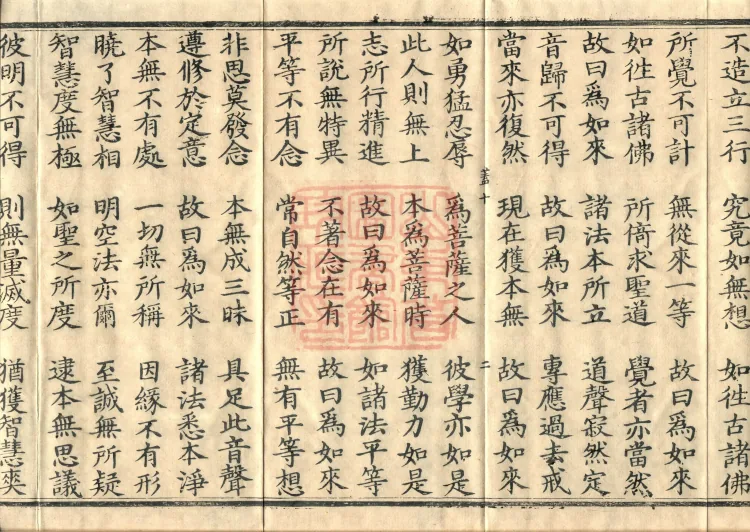 不造立三行 究竟如無想 如徃古諸佛
所覺不可計 無從來一等 故曰為如來
如徃古諸佛 所倚求聖道 覺者亦當然
故曰為如來 諸法本所立 道聲寂然定
音歸不可得 故曰為如來 專應過去戒
當來亦復然 現在獲本無 故曰為如來
蓋十 二
如勇猛忍辱 為菩薩之人 彼學亦如是
此人則無上 本為菩薩時 獲勤力如是
志所行精進 故曰為如來 如諸法平等
所說無特異 不著念在有 故曰為如來
平等不有念 常自然等正 無有平等想
非思莫發念 本無成三昧 具足此音聲
遵修於定意 故曰為如來 諸法悉本淨
本無不有處 一切無所稱 因緣不有形
曉了智慧相 明空法亦爾 至誠無所疑
智慧度無極 如聖之所度 逮本無思議
彼明不可得 則無量滅度 猶獲智慧爽